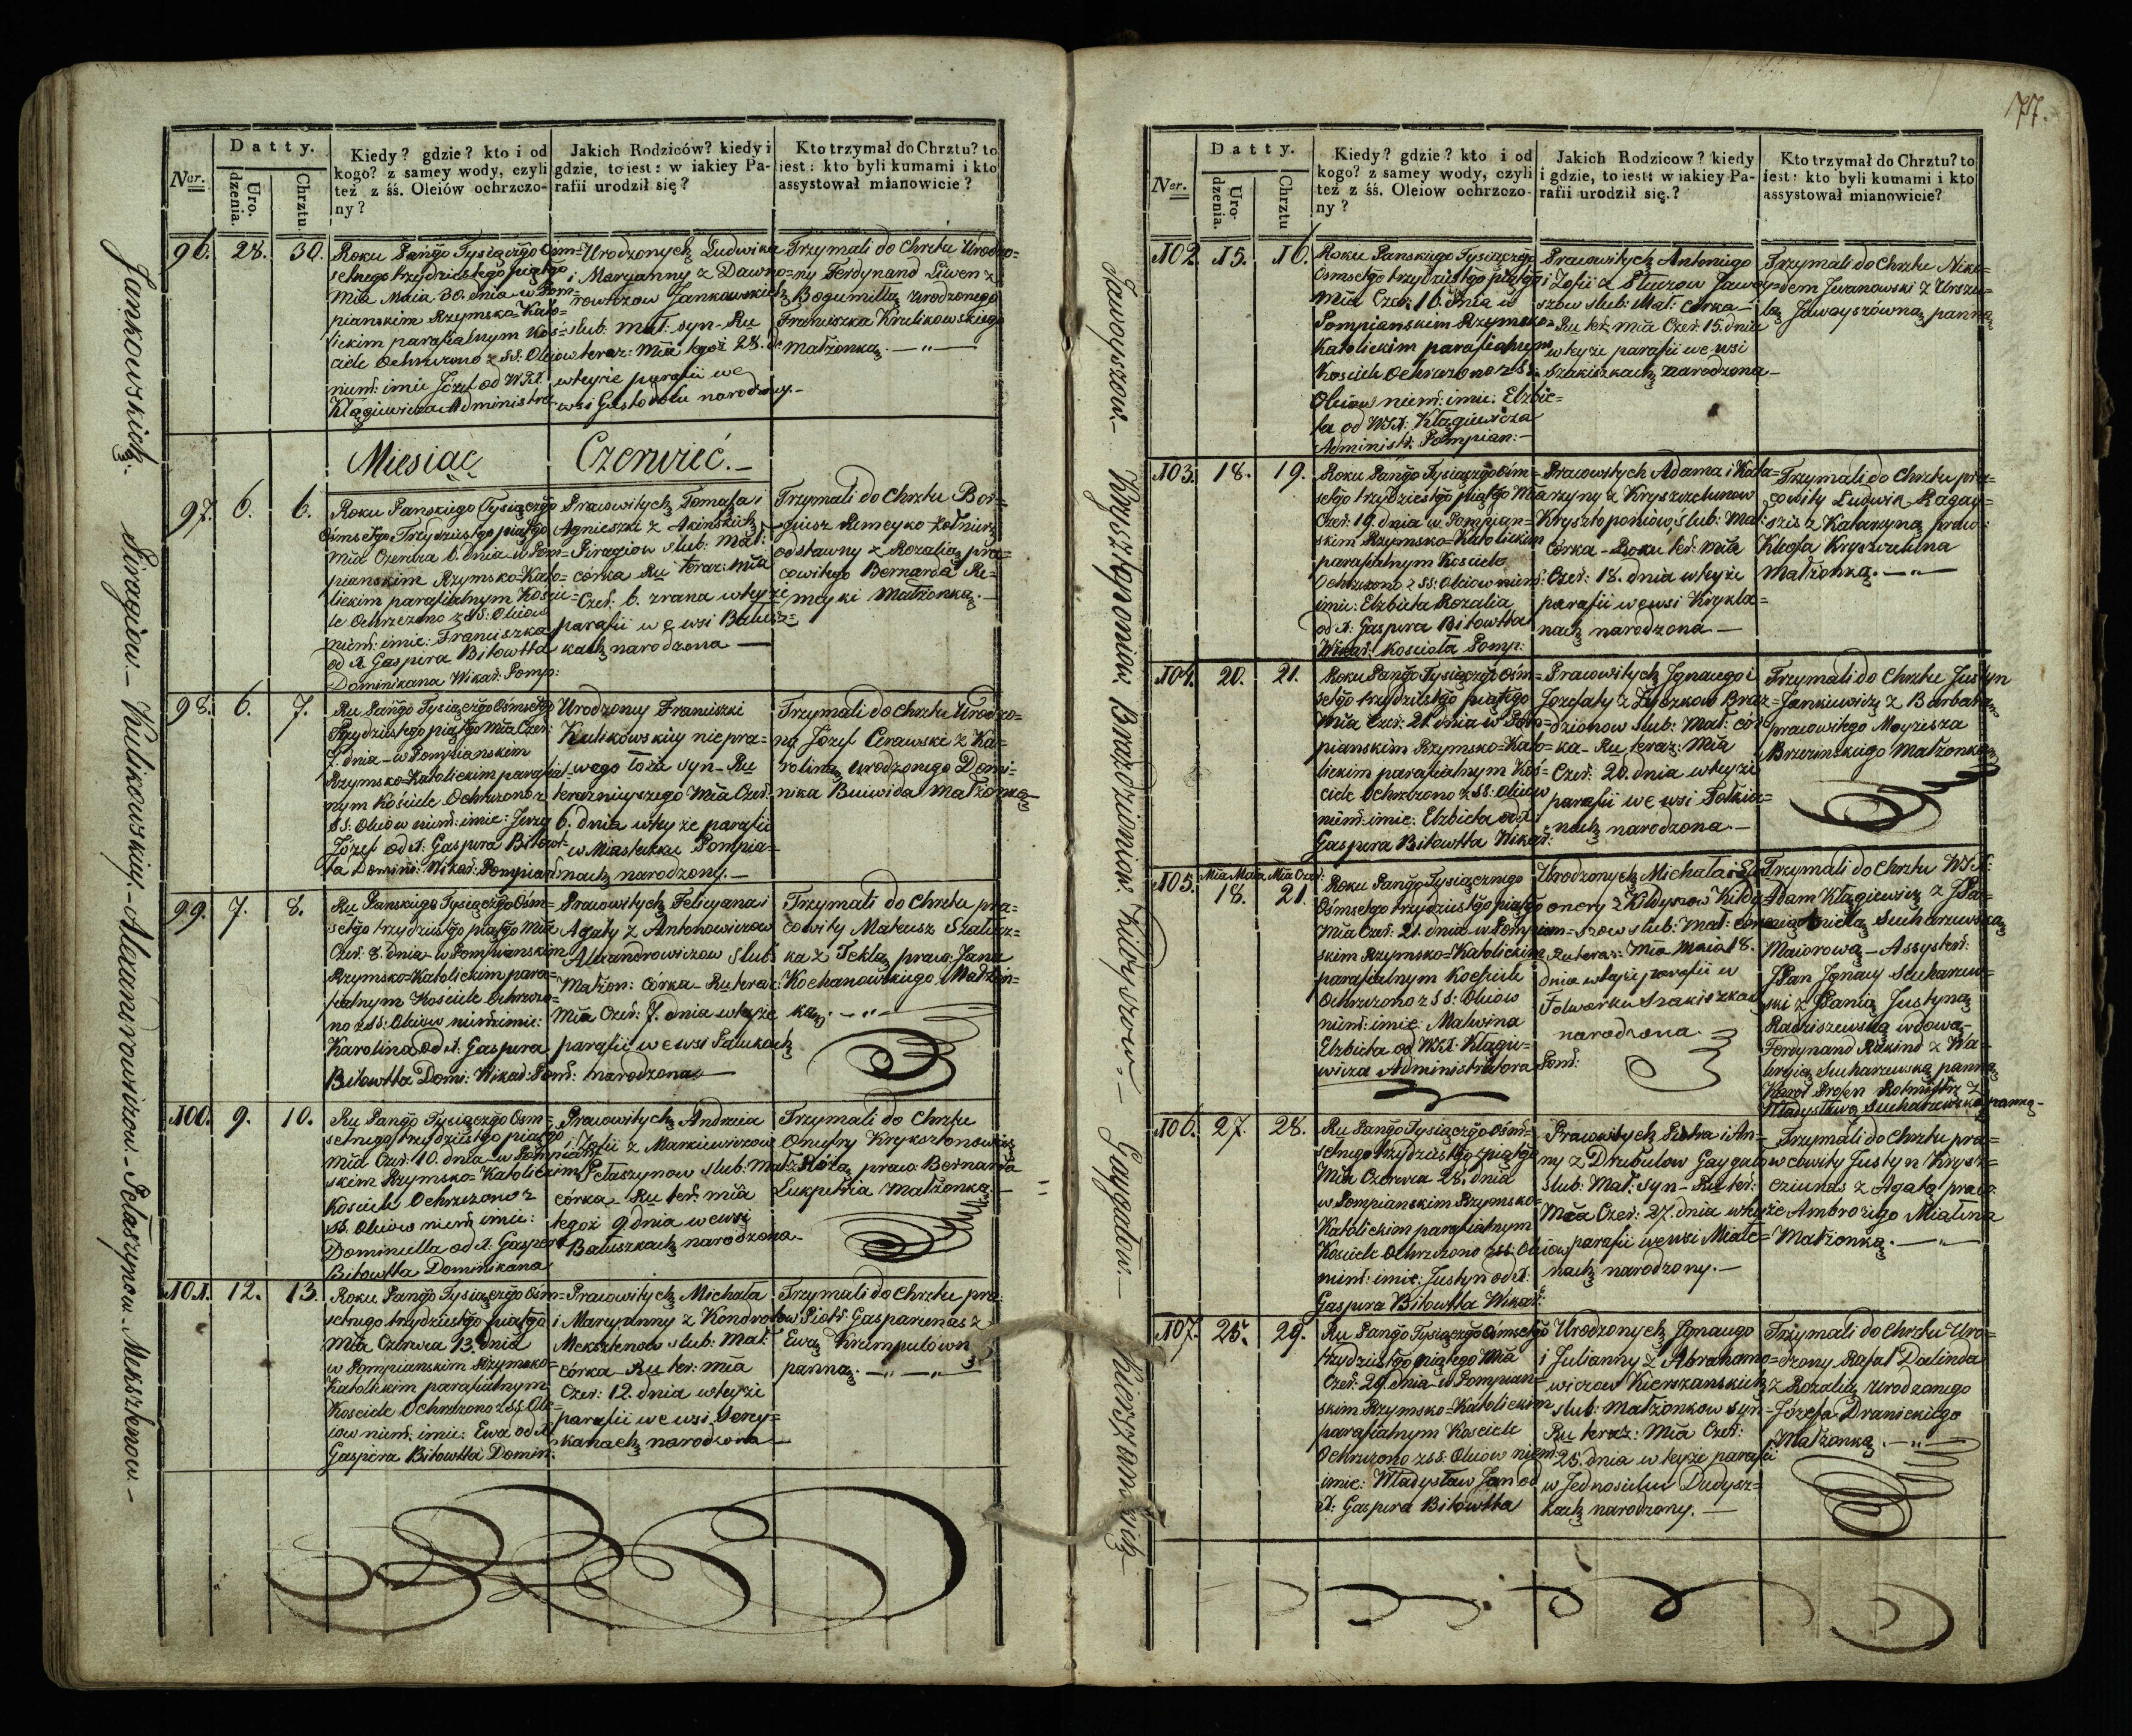 77.
Jankowskich.
Piragiow.–
Kulikowskiey.–
Alexandrowiczow.–
Petaszynow.–
Meksztenow.–
Datty.
Ner.
Uro.
dzenia.
Chrztu
Kiedy? gdzie? kto i od
kogo? z samey wody, czyli
też z śś. Oleiów ochrzczo-
ny?
Jakich Rodziców? kiedy i
gdzie, to iest: w iakiey Pa-
rafii urodził się?
Kto trzymał do Chrztu? to
iest: kto byli kumami i kto
assystował mianowicie?
96. 28. 30.
Roku Pańgo Tysiączgo Ośm=
setnego trzydziestego piątgo
Mca Maia 30. dnia w Pom=
pianskim Rzymsko=Kato=
lickim parafialnym Koś=
ciele Ochrzczono z SS. Oleiow
niem: imie Józef od WX.
Kłągiewicza Administra.
Urodzonych Ludwika
i Maryanny z Dawno=
rowiczow Jankowskich
slub: Mał: syn – Ru
teraz: Mca tegoż 28. de
wteyże parafii we
wsi Gustobolu narodzony.–
Trzymali do Chrztu Urodzo=
ny Ferdynand Liwen z
Bogumiłłą Urodzonego
Franciszka Krulikowskiego
Małżonką.
Miesiąc Czerwiec.–
97. 6. 6.
Roku Panskiego Tysiączgo
Ośmsetgo Trzydziestgo piątgo
Mca Czerwca 6. dnia w Pom=
pianskim Rzymsko=Kato=
lickim parafialnym Kości=
le Ochrzczono z SS: Oleiow
niem: imie: Franciszka
od X Gaspera Bitowtta
Dominikana Wikar: Pomp:
Pracowitych Tomasza i
Agnieszki z Akińskich
Piragiow slub: Mał:
córka Ru teraz: Mca
Czer: 6. zrana wteyże
parafii w e wsi Balusz=
kach narodzona –
Trzymali do Chrztu Bor=
giusz Remeyko żołnierz
odstawny z Rozalią pra=
cowitego Bernarda Re=
meyki Małżonką.–
98. 6. 7.
Ru Pańgo Tysiączgo Ośmsetgo
Trzydziestego piątgo Mca Czer:
7. dnia – w Pompianskim
Rzymsko=Katolickim parafial=
nym Kościele Ochrzczono z
SS: Oleiow niem: imie: Jerzy
Józef od X. Gaspera Bitowt=
ta Domini: Wikar: Pompian
Urodzony Franciszki
Kulikowskiey niepra=
wego łoża syn – Ru
teraznieyszego Mca Czer:
6. dnia wtey że parafii
w Miasteczku Pompia=
nach narodzony.–
Trzymali do Chrztu Urodzo=
ny Józef Cerawski z Ka=
roliną Urodzonego Domi=
nika Buiwida Małżonką
99. 7. 8.
Ru Panskiego Tysiączgo Ośm=
setgo trzydziestgo piątgo Mca
Czer: 8. dnia – w Pompianskim
Rzymsko=Katolickim para=
fialnym Kościele Ochrzczo=
no z SS: Oleiow niem: imie:
Karolina od X. Gaspera
Bitowtta Domi: Wikar: Pom:
Pracowitych Felicyana i
Agaty z Antonowiczow
Alexandrowiczow slub:
Małżon: Córka – Ru teraz:
Mca Czer: 7. dnia wteyże
parafii w e wsi Sałukach
narodzona
Trzymali do Chrztu pra=
cowity Mateusz Szalisz=
ka z Teklą praco: Jana
Kochanowskiego Małżon=
ką.
100. 9. 10.
Ru Pańgo Tysiączgo Ośm=
setnego trzydziestego piątgo
Mca Czer: 10. dnia – w Pompian
skim Rzymsko=Katolickim
Kościele Ochrzczono z
SS. Oleiow niem imie:
Dominicella od X. Gasper
Bitowtta Dominikana
Pracowitych Andrzeia
i Zofii z Markiewiczow
Petaszynow slub: Mał:
córka – Ru ter: mca
tegoż 9 dnia w e wsi
Batuszkach narodzona
Trzymali do Chrztu
Onufry Krykształowicz
z Różą praco: Bernarda
Łukpetria Małżonką.
101. 12. 13.
Roku Pańgo Tysiączgo Ośm=
setnego trzydziestgo piątgo
Mca Czerwca 13. dnia
w Pompianskim Rzymsko=
Katolickim parafialnym
Kosciele Ochrzczono z SS. Ole=
iow niem: imie: Ewa od X
Gaspera Bitowtta Domin:
Pracowitych Michała
i Maryanny z Kondrotow
Meksztenow slub: Mał:
córka Ru ter: mca
Czer: 12. dnia wteyże
parafii we wsi Derey=
kanach narodzona –
Trzymali do Chrztu pra
Piotr Gasparunas z
Ewą Krumpulówn
panną.
Jawoyszow.–
Krysztoponiow.
Brazdzioniow.
Kildyszow.–
Gaygałow.–
Kierszanskich.–
Datty.
Ner.
Uro-
dzenia.
Chrztu
Kiedy? gdzie? kto i od
kogo? z samey wody, czyli
też z śś. Oleiow ochrzczo-
ny?
Jakich Rodzicow? kiedy
i gdzie, to iest: w iakiey Pa-
rafii urodził się.?
Kto trzymał do Chrztu? to
iest: kto byli kumami i kto
assystował mianowicie?
102. 15. 16.
Roku Panskiego Tysiączgo
Ośmsetgo trzydziestgo piątgo
Mca Czer: 16. dnia w
Pompianskim Rzymsko=
Katolickim parafialnym
Kosciele Ochrzczono z SS.
Oleiow niem: imie: Elzbie=
ta od WX: Kłągiewicza
Administ: Pompian:–
Pracowitych Antoniego
i Zofii z Stuczow Jawoy=
szow slub: Mał: Córka –
Ru ter: Mca Czer: 15. dnia
wteyże parafii we wsi
Szakiszkach narodzona –
Trzymali do Chrztu Niko=
dem Jwanowski z Urszu=
lą Jawoyszówną panną
103. 18. 19.
Roku Pańgo Tysiączgo Ośm=
setgo trzydziestgo piątgo Mca
Czer: 19. dnia w Pompian=
skim Rzymsko=Katolickim
parafialnym Kosciele
Ochrzczono z SS: Oleiow niem:
imie: Elzbieta Rozalia
od X: Gaspera Bitowtta
Wikar: Kosciola Pomp:
Pracowitych Adama i Kata=
rzyny z Kryszczelunow
Krysztoponiow slub: Mał:
Córka – Roku ter: Mca
Czer: 18. dnia wteyże
parafii w e wsi Krykla=
nach narodzona –
Trzymali do Chrztu pra=
cowity Ludwik Ragay=
szis z Katarzyną praco:
Kleofa Kryszcieluna
Małżonką.
104. 20. 21.
Roku Pańgo Tysiączgo Ośm=
setgo trzydziestgo piątego
Mca Czer: 21 dnia w Pom=
pianskim Rzymsko=Kato=
lickim parafialnym Koś=
ciele Ochrzczono z SS: Oleiow
niem: imie: Elzbieta od X:
Gaspera Bitowtta Wikar:
Pracowitych Jgnacego i
Jozefaty z Łyszkow Braz=
dzionow slub: Mał: cór=
ka – Ru teraz: Mca
Czer: 20. dnia wteyże
parafii we wsi Tolkia=
nach narodzona.–
Trzymali do Chrztu Justyn
Jankiewicz z Barbarą
pracowitego Moyżesza
Brzezinskiego Małżonką
105. Mca Maia 18. Mca Czer: 21.
Roku Pańgo Tysiącznego
Ośmsetgo trzydziestgo piątgo
Mca Czer: 21. dnia w Pompian=
skim Rzymsko=Katolickim
parafialnym Kościele
Ochrzczono z SS: Oleiow
niem: imie: Malwina
Elzbieta od WX: Kłągie=
wicza Administratora Pom:
Urodzonych Michała i
z Kildyszow Kildy=
szow slub: Mał: córka
Ru teraz: Mca Maia 18.
dnia wteyże parafii w
Folwarku Szakiszkach
narodzona.
Trzymali do Chrztu WX:
Adam Kłągiewicz z JPa=
nią Anielą Sucharzewską
Maiorową – Assyster:
JPan Jgnacy Sucharzew=
ski z Panią Justyną
Radziszewską wdową,–
Ferdynand Rakind z Wa=
leryią Sucharzewską panną
Karol Profen Rotmistrz z
Władysławą Sucharzewską panną.–
106. 27. 28.
Ru Pańgo Tysiączgo Ośm=
setnego trzydziestgo piątgo
Mca Czerwca 28. dnia
w Pompianskim Rzymsko=
Katolickim parafialnym
Kosciele Ochrzczono z SS: Oleiow
niem: imie: Justyn od X:
Gaspera Bitowtta Wikar:
Pracowitych Piotra i An=
ny z Drubulow Gaygałow
slub: Mał: syn – Ru ter:
Mca Czer: 27. dnia wteyże
parafii we wsi Miałe=
nach narodzony.–
Trzymali do Chrztu pra=
cowity Justyn Krysz=
cziunas z Agatą praco:
Ambrożego Mialina
Małżonką.
107. 25. 29.
Ru Pańgo Tysiączgo Ośmsetgo
trzydziestgo piątego Mca
Czer: 29. dnia – w Pompian=
skim Rzymsko=Katolickim
parafialnym Kosciele
Ochrzczono z SS: Oleiow niem:
imie: Władysław Jan od
X: Gaspera Bitowtta
Urodzonych Jgnacego
i Julianny z Abrahamo=
wiczow Kierszanskich
slub: Małżonkow syn –
Ru teraz: Mca Czer:
25. dnia w teyże parafii
w Jednosielu Dudysz=
kach narodzony.–
Trzymali do Chrztu Uro=
dzony Rafał Dalinda
z Rozalią Urodzonego
Józefa Dranickiego
Małżonką.